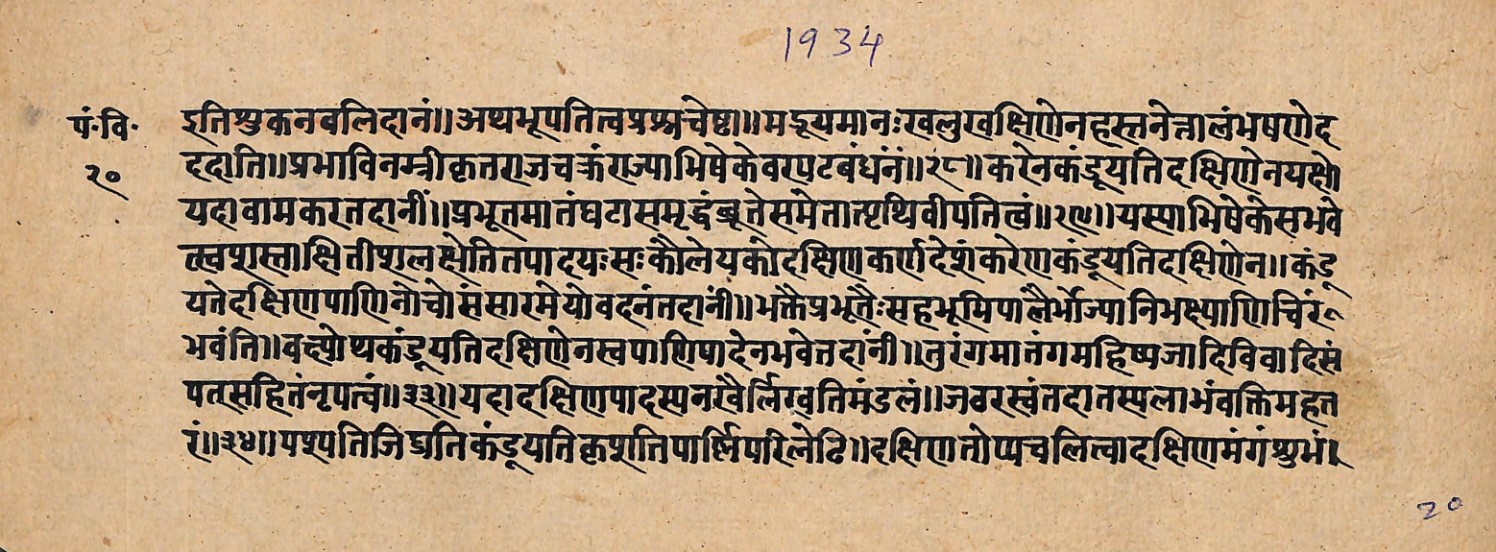 1934
पं॰वि॰
२०
इतिशुकनबलिदानं॥अथभूपतित्वप्रप्नचेष्टा॥मडूयमानःखलुखक्षिणेनहस्तनेत्रालंभषणेद
ददाति॥प्रभाविनम्रीकृतराजचक्रंराज्याभिषेकेवरपटबंधंनं॥२८॥करेनकंडूयतिदक्षिणेनयक्षो
यदावामकरतदानीं॥प्रभूतमातंघटासमृद्धंब्रूतेसमेतात्पृथिवीपतित्वं॥२९॥यस्याभिषेकेसभवे
त्स्वशस्त्राक्षितीशलक्षेतितपादयःसःकौलेयकोदक्षिणकर्णदेशंकरेणकंडूयतिदक्षिणेन॥कंडू
यतेदक्षिणपाणिनोचोसंसारमेयोवदनंतदानीं॥भक्तैप्रभूतैःसहभूमिपालैर्भोज्यानिभक्ष्याणिचिरं
भवंति॥वक्षोथकंडूयतिदक्षिणेनस्वपाणिपादेनभवेत्तदांनी॥तुरंगमातंगमहिष्यजादिविवादिसं
पत्सहितंनृपत्वं॥३३॥यदादक्षिणपादस्यनखैर्लिखतिमंडलं॥जवरस्त्वंतदातस्यलाभंवक्तिमहत्त
रं॥३४॥पश्यतिजिघ्रतिकंडूयतिकृशत्तिपार्ष्णिपरिलेढि॥दक्षिणतोप्यचलित्वादक्षिणमंगंशुभं।
20